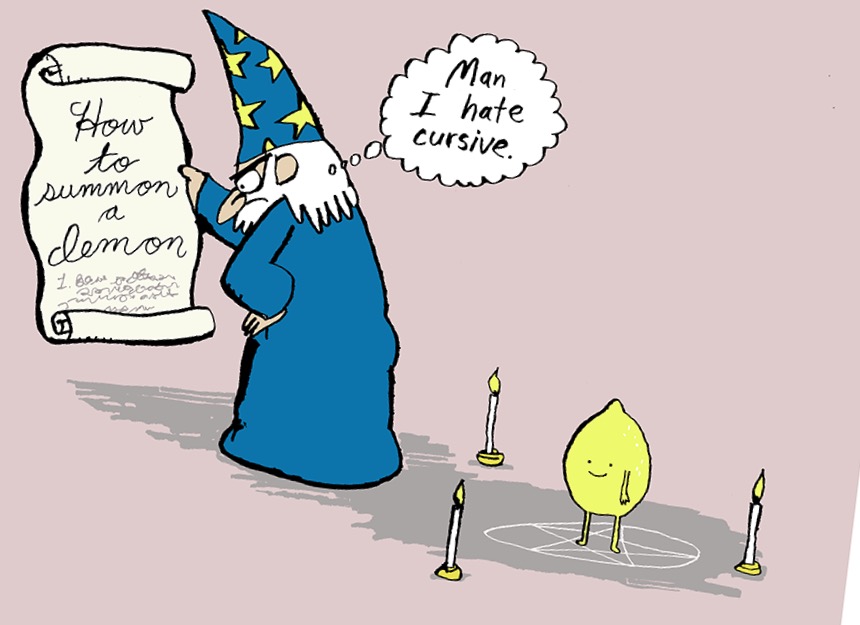 How
to
summon
a
demon
1.
Man
I hate
cursive.